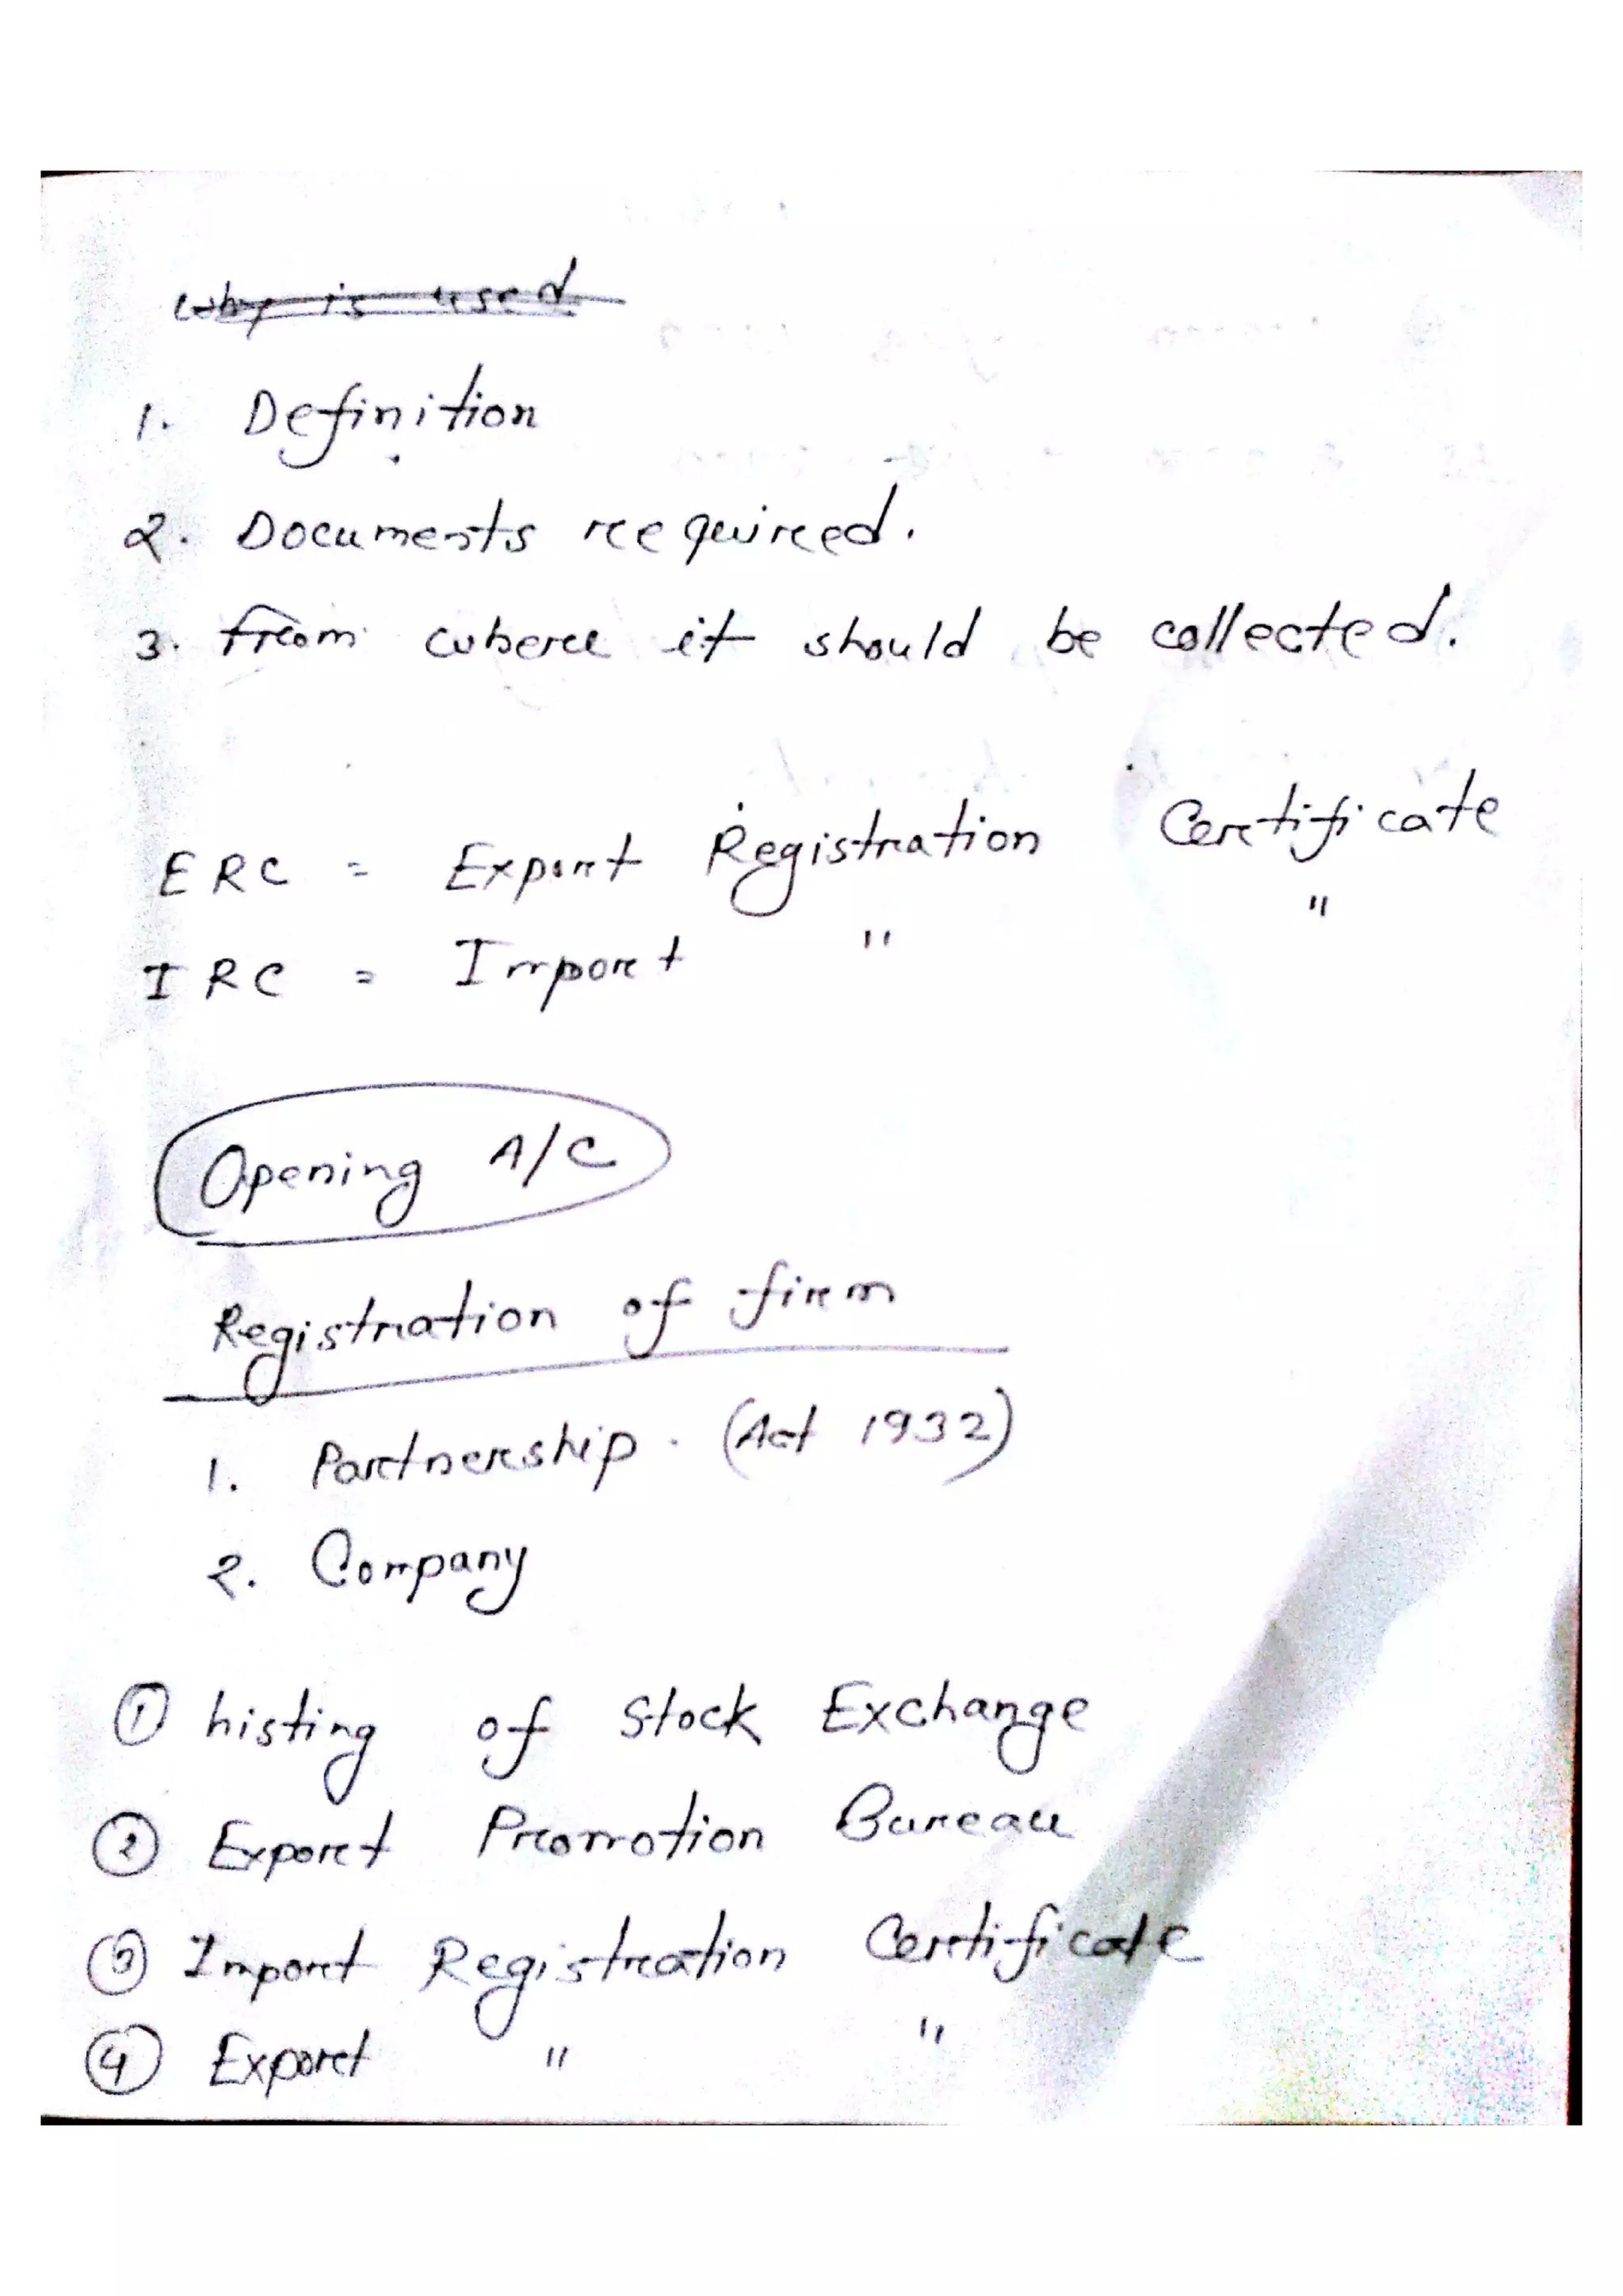 why is used
1. Definition
2. Documents required.
3. from where it should be collected.
ERC = Export Registration Certificate
IRC = Import " "
Opening A/C
Registration of firm
1. Partnership. (Act 1932)
2. Company
① Listing of Stock Exchange
② Export Promotion Bureau
③ Import Registration Certificate
④ Export " "